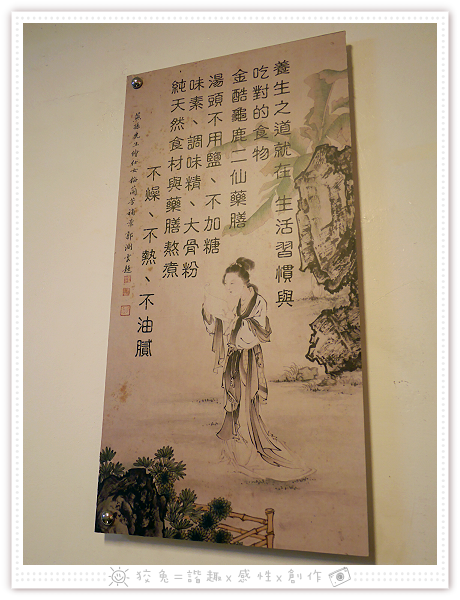 養生之道就在生活習慣與
吃對的食物
金酷龜鹿二仙藥膳
湯頭不用鹽、不加糖
味素、調味精、大骨粉
純天然食材與藥膳熬煮
不燥、不熱、不油膩
狡兔=諧趣x感性x創作